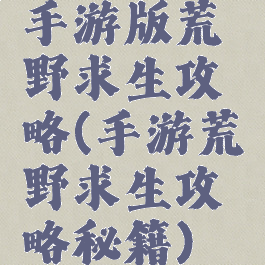 手游版荒
野求生攻
略(手游荒
野求生攻
略秘籍)